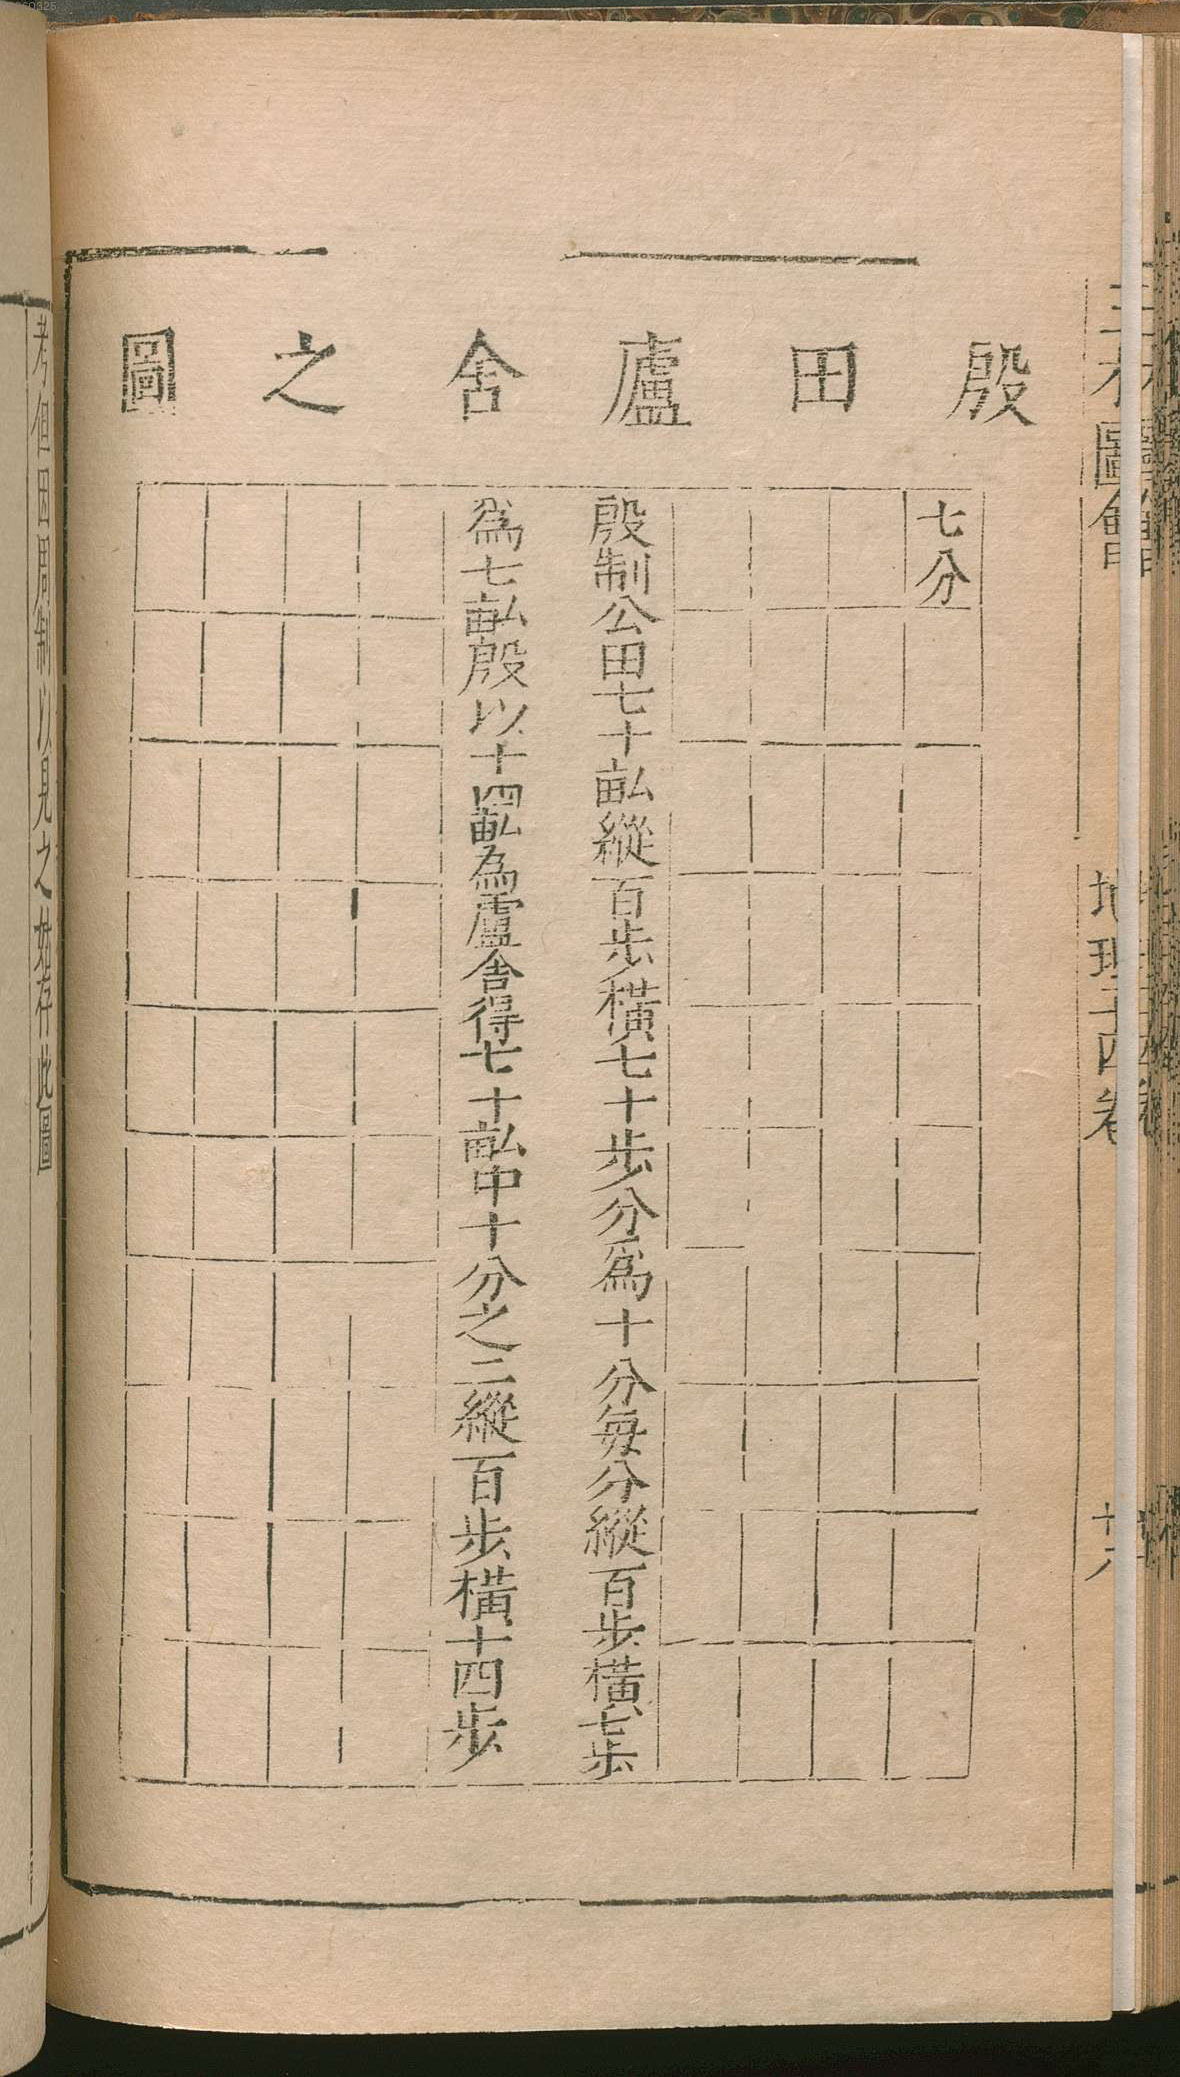 殷田廬舍之圖
七分
殷制公田七十畝縱百步橫七十步分爲十分每分縱百步橫七步
爲七畝殷以十四畝為廬舍得七十畝中十分之二縱百步橫十四步
三才圖會
地理十四卷
廿六
考但因周制以見之姑存此圖